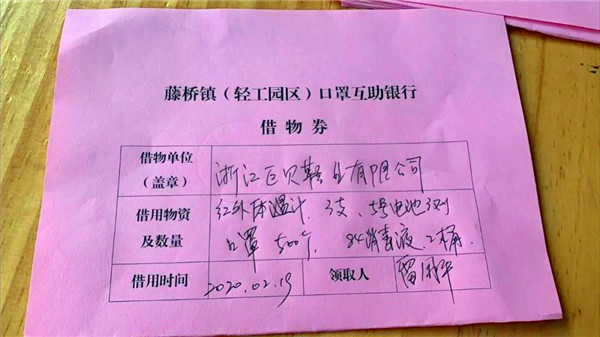 藤桥镇（轻工园区）口罩互助银行
借物券
借物单位
（盖章）
浙江巨贝鞋业有限公司
借用物资
及数量
红外体温计 3支、5号电池
口罩 500个 84消毒液 2桶
借用时间
2020.02.19
领取人